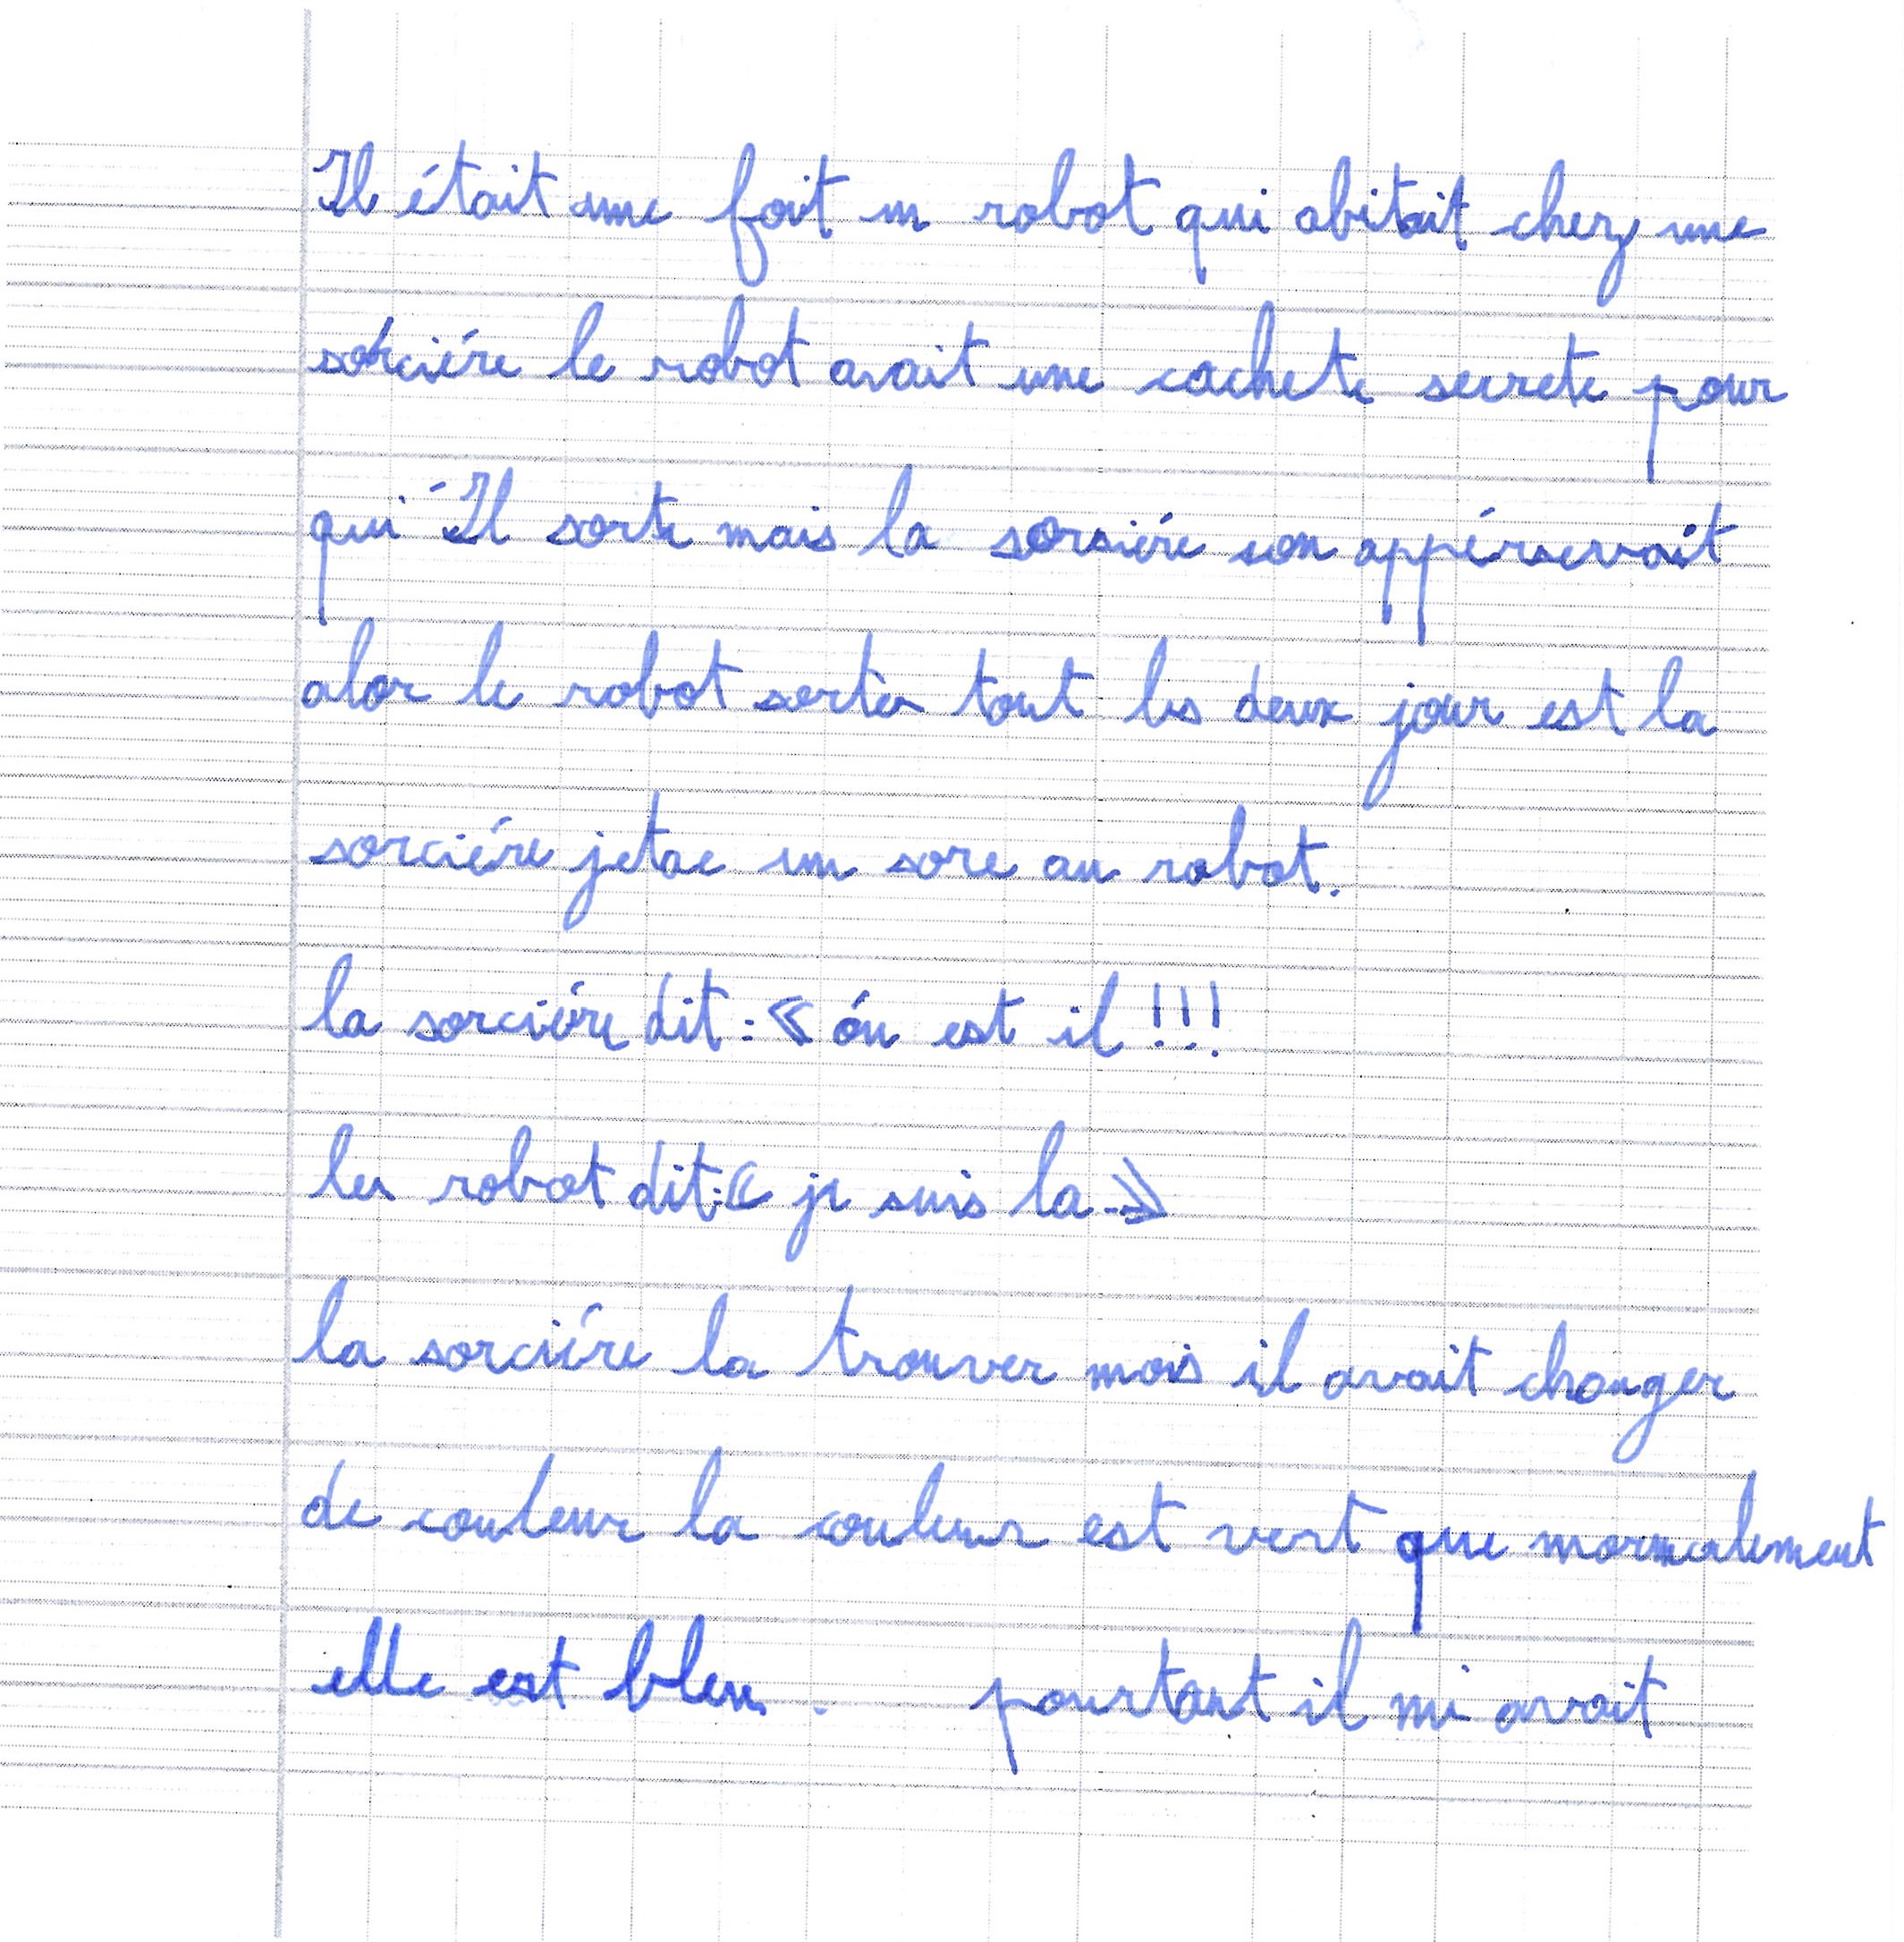 Il était une foit un robot qui abitait chez une
sorciére le robot avait une cachete secrete pour
qui Il sorte mais la sorsiére son appérsevait
alor le robot sorter tout les deux jour est la
sorciére jetae un sore au robot.
la sorciére dit : « óu est il !!!
les robot dit : « je suis la.. »
la sorciére la trouver mais il avait changer
de couleur la couleur est vert que normalement
elle est bleu . pourtant il ni avait